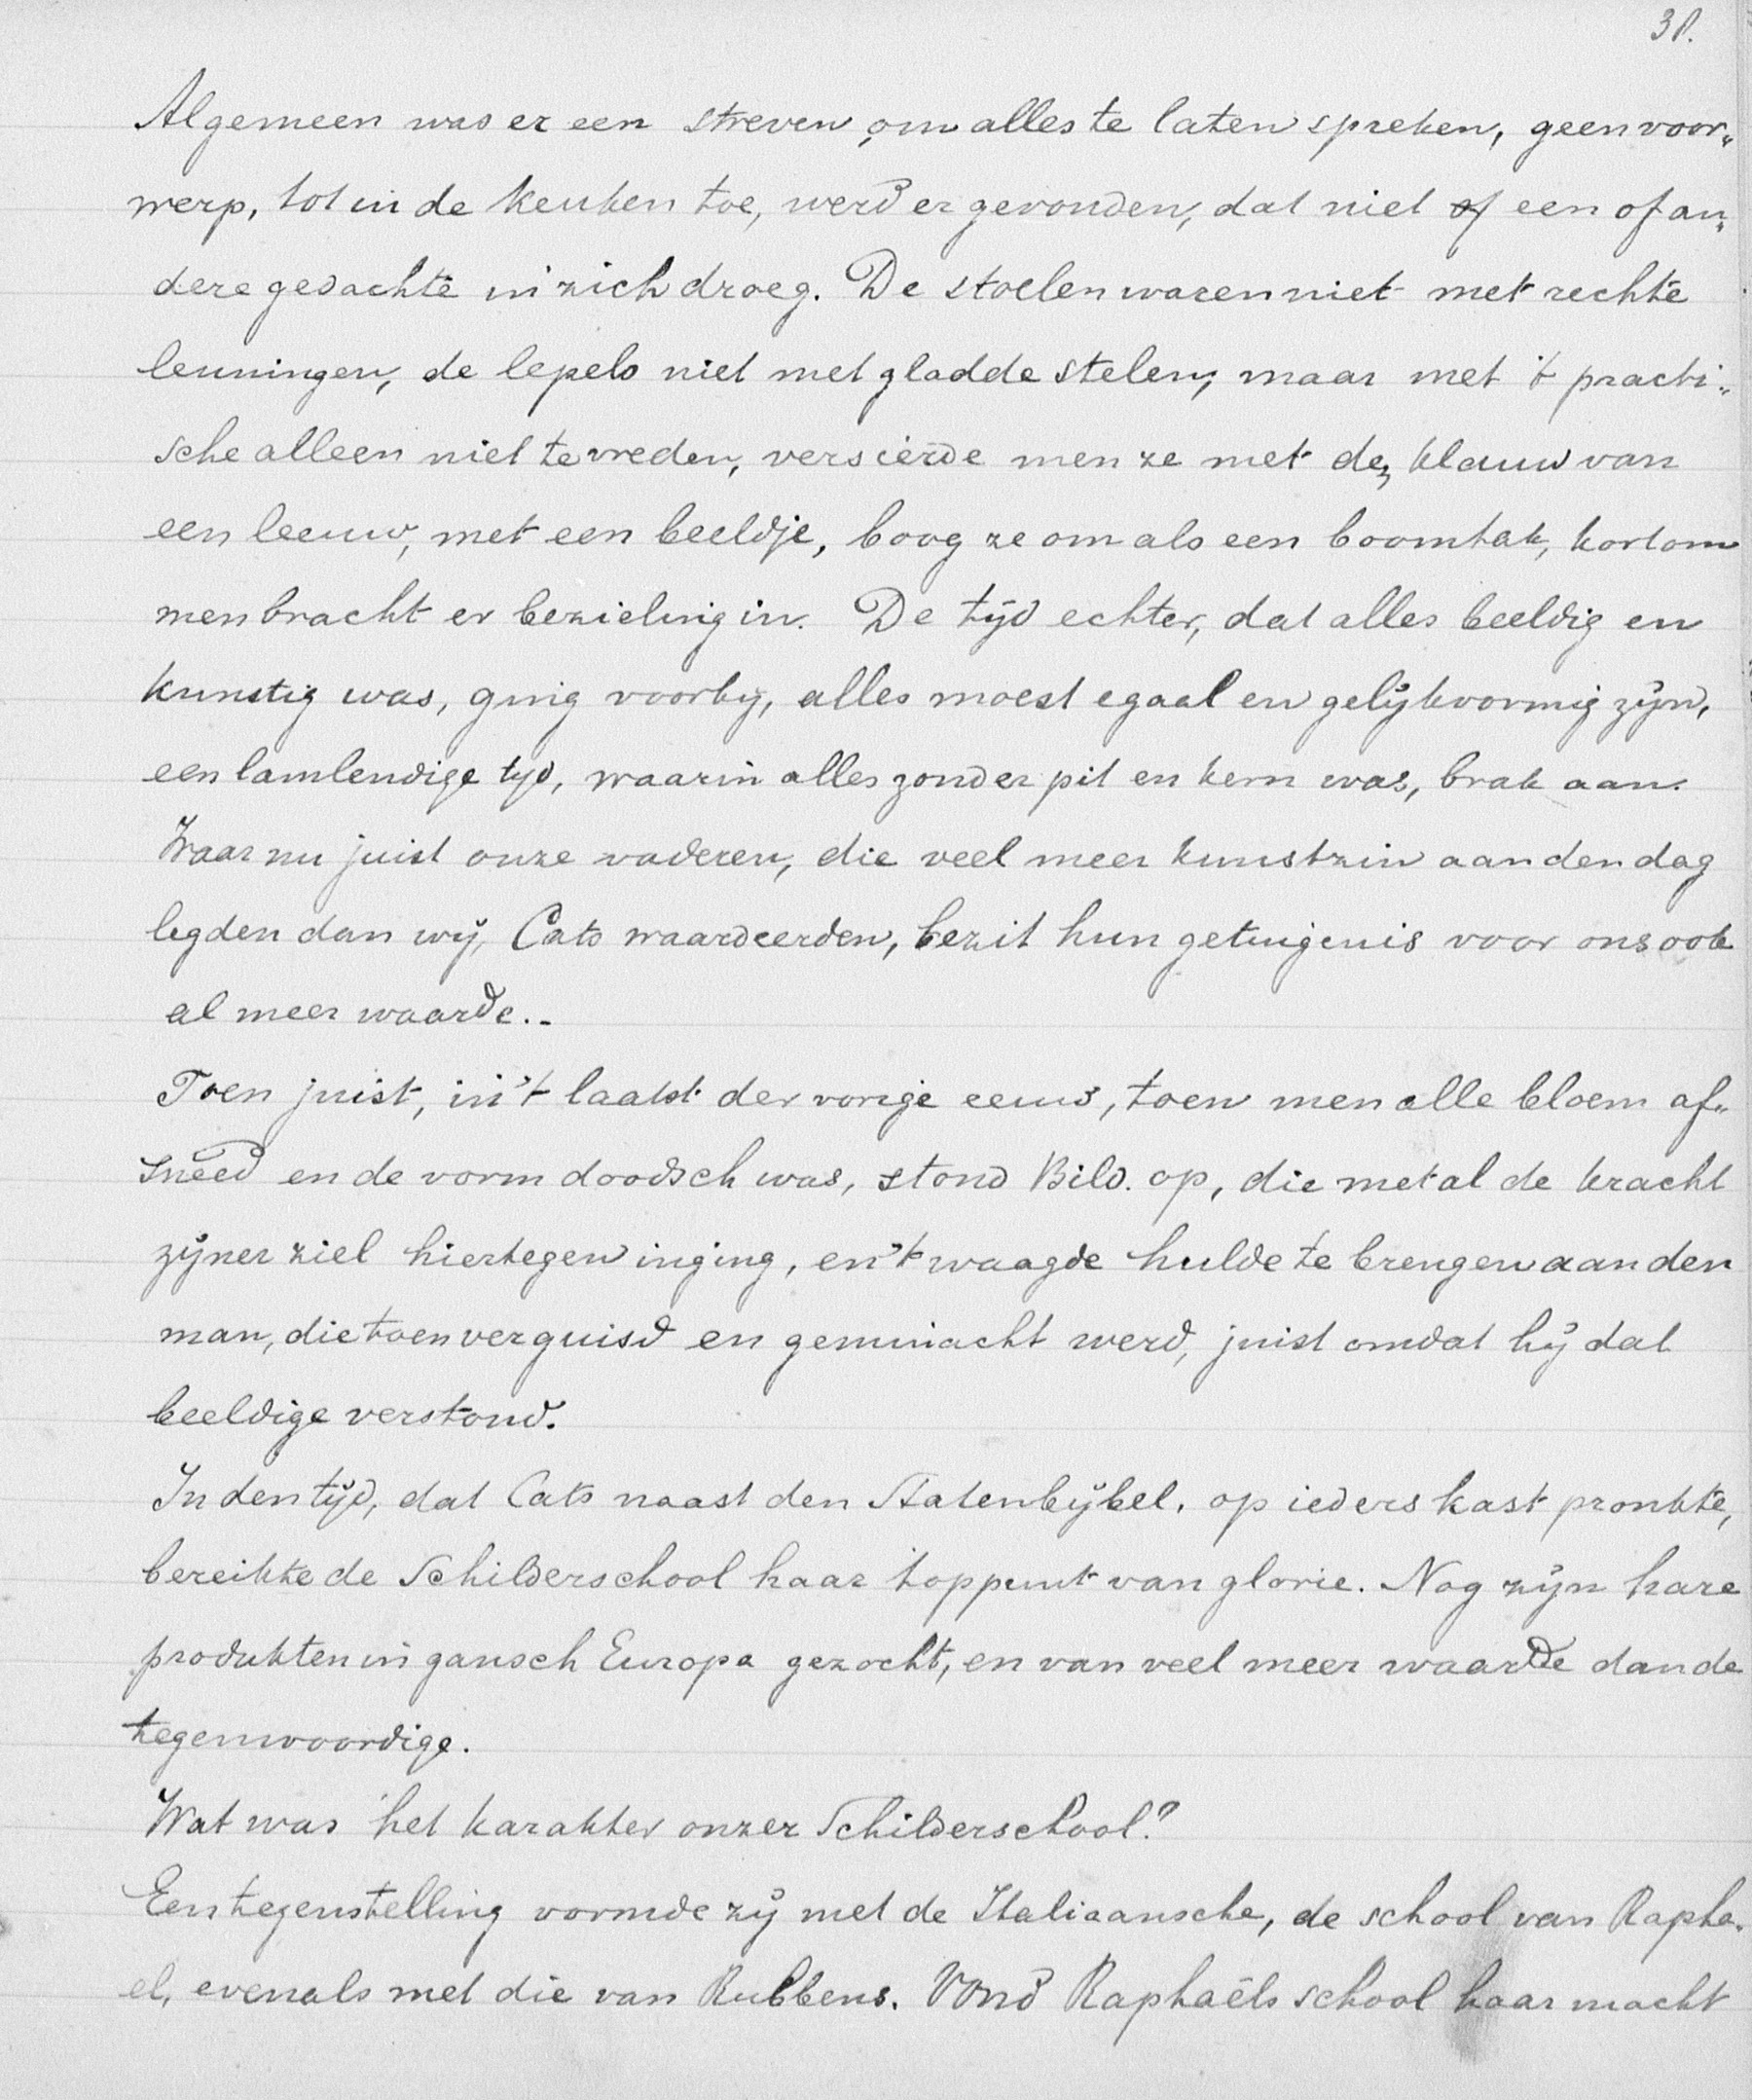 38.
Algemeen was er een streven, om alles te laten spreken, geen voor„
werp, tot in de keuken toe, werd er gevonden, dat niet of een of an„
dere gedachte in zich droeg. De stoelen waren niet met rechte
leuningen, de lepels niet met gladde stelen, maar met 't practi„
sche alleen niet tevreden, versierde men ze met de klauw van
een leeuw, met een beeldje, boog ze om als een boomtak, kortom
men bracht er bezieling in. De tijd echter, dat alles beeldig en
kunstig was, ging voorbij, alles moest egaal en gelijkvormig zijn,
een lamlendige tijd, waarin alles zonder pit en kern was, brak aan.
Waar nu juist onze vaderen, die veel meer kunstzin aan den dag
legden dan wij, Cats waardeerden, bezit hun getuigenis voor ons ook
al meer waarde.-
Toen juist, in 't laatst der vorige eeuw, toen men alle bloem af„
sneed en de vorm doodsch was, stond Bild. op, die met al de kracht
zijner ziel hiertegen inging, en 't waagde hulde te brengen aan den
man, die toen verguisd en geminacht werd, juist omdat hij dat
beeldige verstond.
In den tijd, dat Cats naast den Statenbijbel, op ieders kast pronkte,
bereikte de Schilderschool haar toppunt van glorie. Nog zijn hare
produkten in gansch Europa gezocht, en van veel meer waarde dan de
tegenwoordige.
Wat was het karakter onzer Schilderschool?
Een tegenstelling vormde zij met de Italiaansche, de school van Rapha„
el, evenals met die van Rubbens. Vond Raphaëls school haar macht